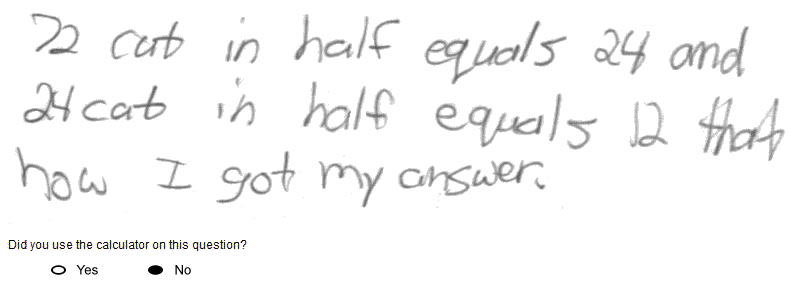 72 cut in half equals 24 and
24 cat in half equals 12 that
how I got my answer.
Did you use the calculator on this question?
Yes No